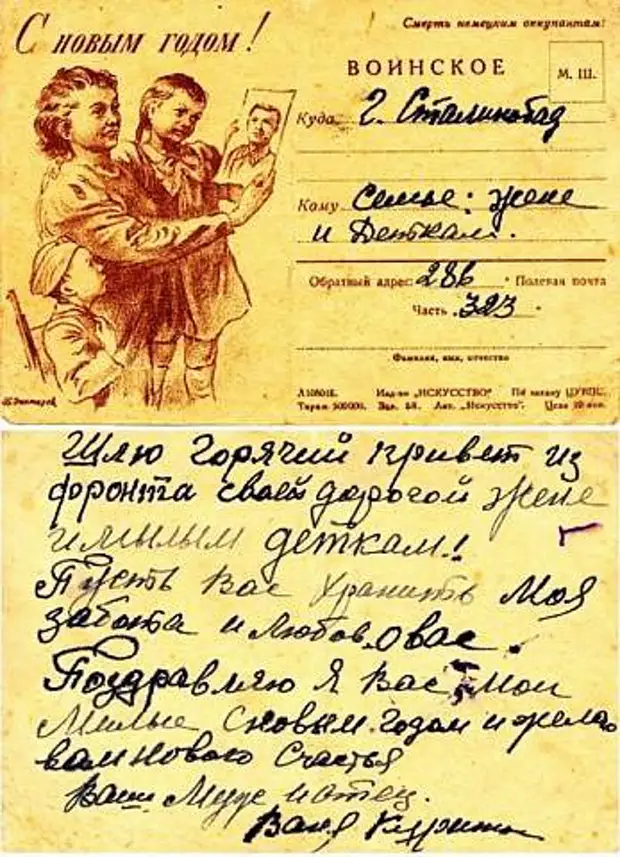 С новым годом!
Смерть немецким оккупантам!
ВОИНСКОЕ
М. Ш.
Куда г. Сталинобад
Кому Семье: жене
и деткам.
Обратный адрес: 286 Полевая почта
Часть 323
Фамилия, имя, отчество
Изд-во „ИСКУССТВО“ По заказу
Тираж 500000. Зак. Ант. „Искусство“. Цена
Шлю горячий привет из
фронта своей дорогой жене
и милым деткам!
Пусть Вас хранить Моя
забота и любов. о вас.
Поздравляю Я Вас Мои
Милые с новым годом и желаю
вам нового счастья
Ваш Муж и отец.
Ваня